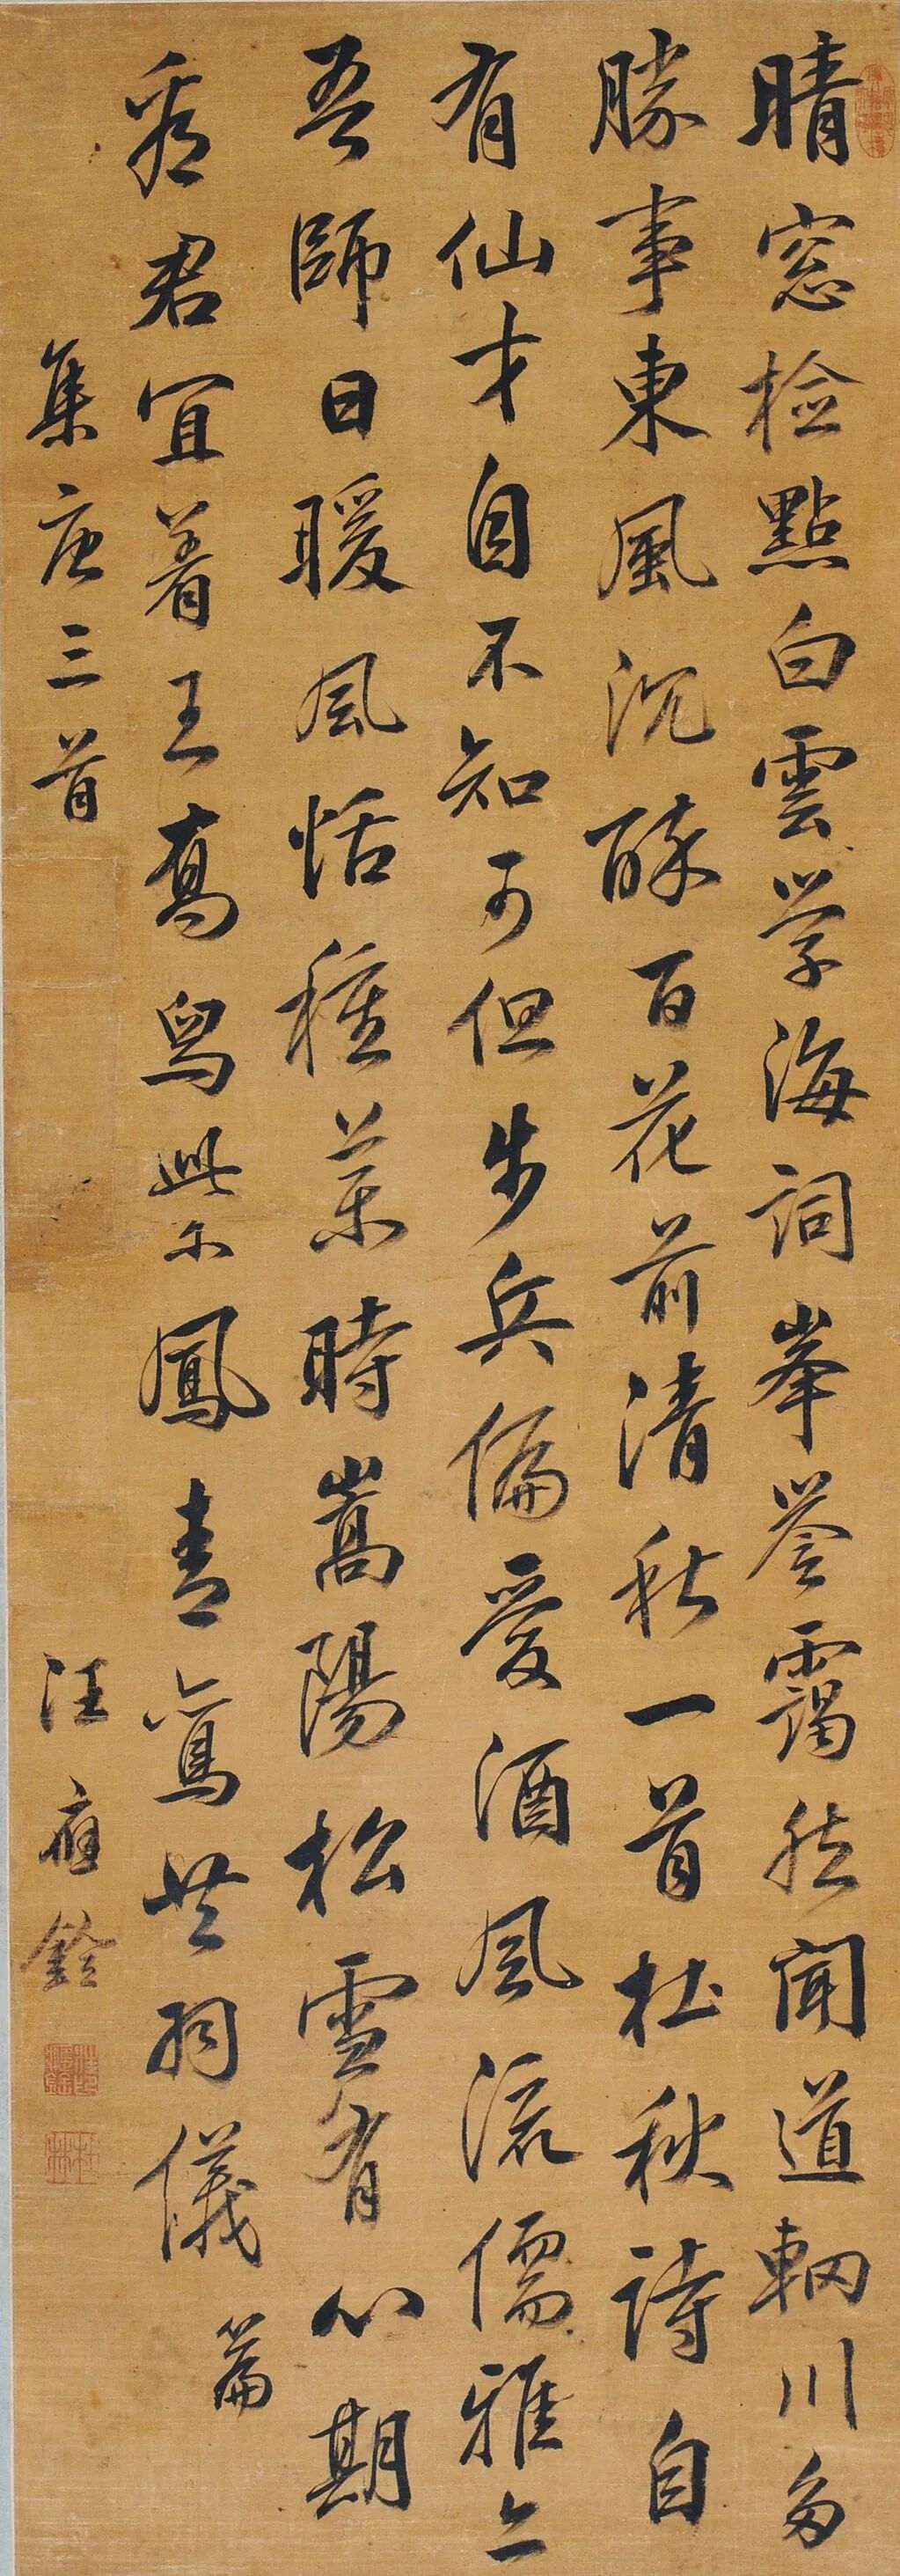 晴窓檢點白雲学海詞峯誉靄然聞道輞川多
勝事東風沉醉百花前清秋一首杜秋詩自
有仙才自不知可但步兵偏愛酒風流儒雅亦
吾師日暖風恬種藥時嵩陽松雪有心期
看君宜着王喬舄紫鳳青鸞共羽儀 篇
集唐三首
汪應銓